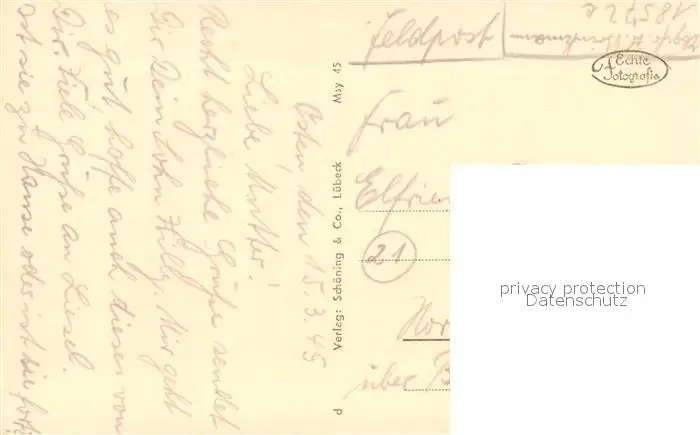 Osten, den 15.3.45
Liebe Mutter!
Recht herzliche Grüße sendet
Dir Dein Sohn Willy. Mir geht
es gut, hoffe auch dieses von
Dir. Viele Grüße an Liesel.
Ist sie zu Hause oder ist sie fort?
d Verlag: Schöning & Co., Lübeck Msy 45
Feldpost
18572
Echte
Fotografie
Frau
Elfrie
21
Hor
über B
privacy protection
Datenschutz